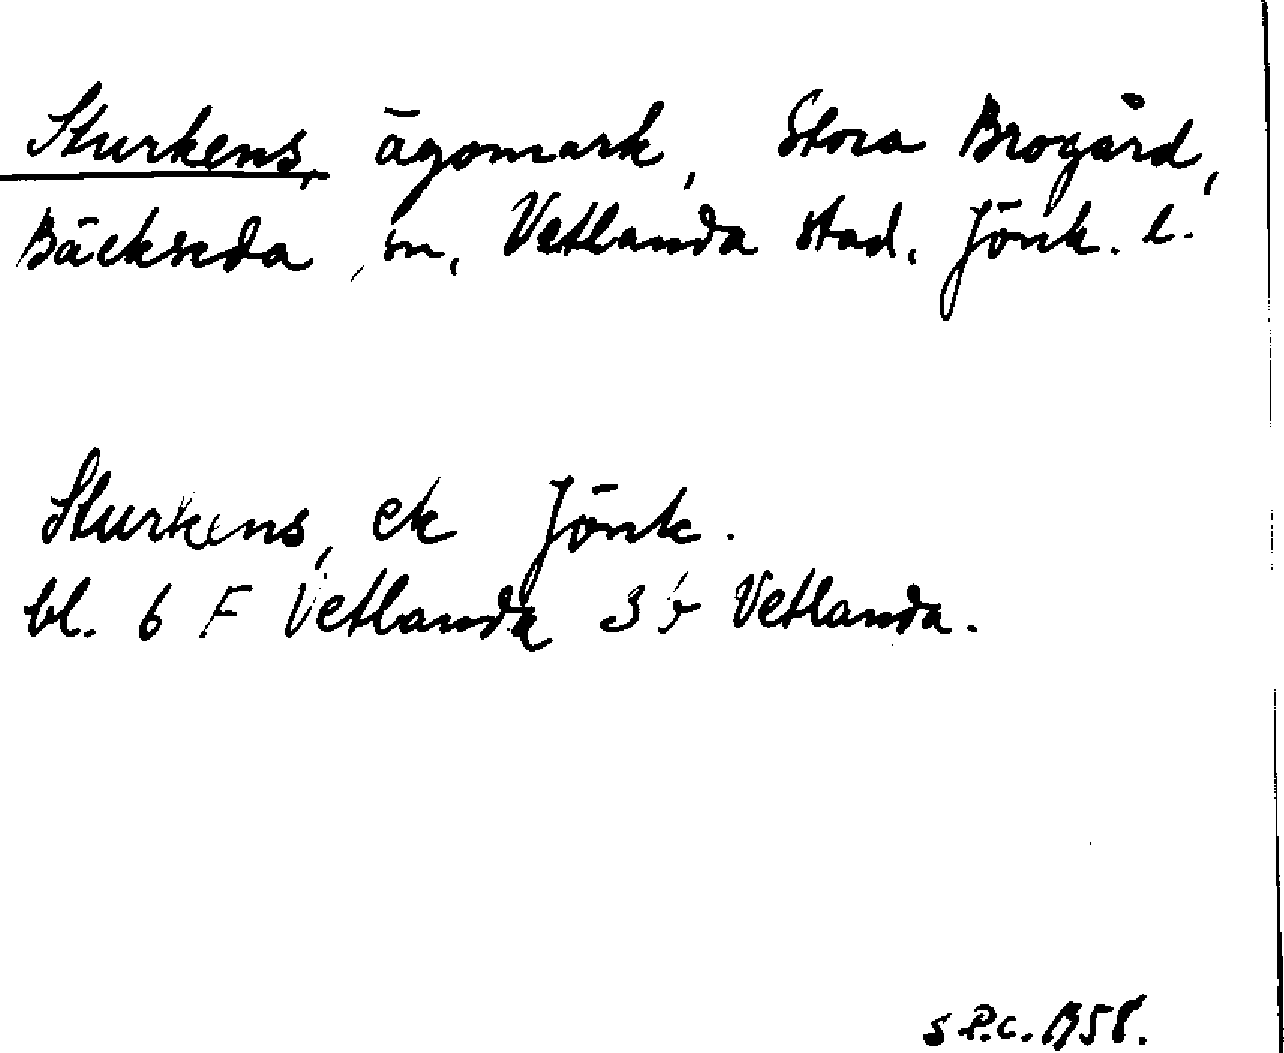 Sturkens, ägomark, Stora Brogård,
Bäckseda sn, Vetlanda stad. Jönk. l.
Sturkens, ek Jönk.
bl. 6 F Vetlanda 3 f Vetlanda.
S P.C. 1958.